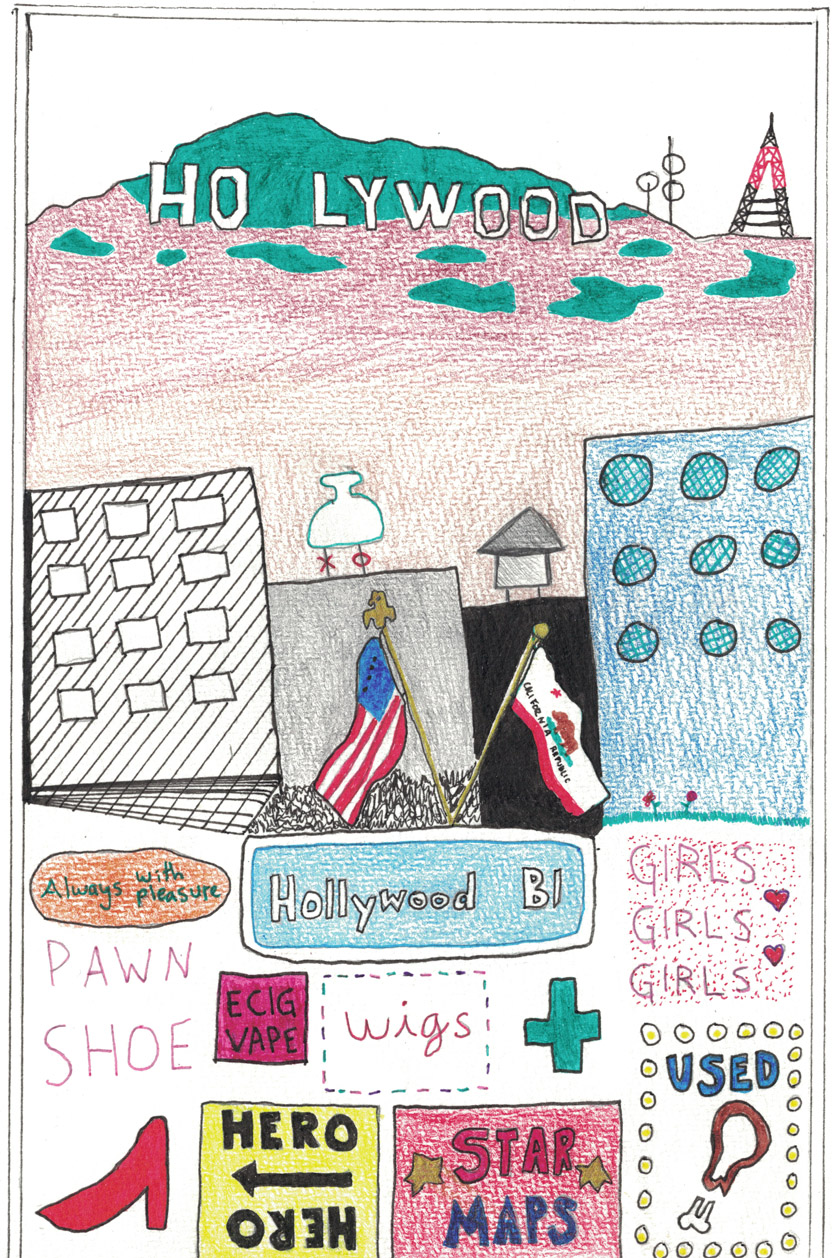 HO LYWOOD
CALIFORNIA REPUBLIC
Always with pleasure
Hollywood Bl
GIRLS
GIRLS
GIRLS
PAWN
SHOE
ECIG
VAPE
wigs
USED
HERO
HERO
STAR
MAPS